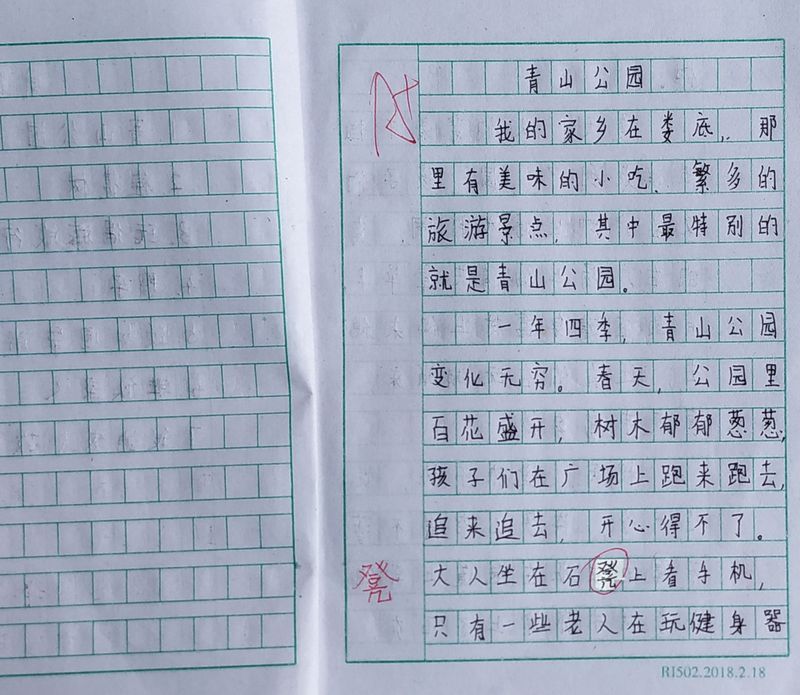 青山公园
我的家乡在娄底，那
里有美味的小吃、繁多的
旅游景点，其中最特别的
就是青山公园。
一年四季，青山公园
变化无穷。春天，公园里
百花盛开，树木郁郁葱葱，
孩子们在广场上跑来跑去，
追来追去，开心得不了。
大人坐在石凳上看手机，
凳
只有一些老人在玩健身器
RJ502.2018.2.18